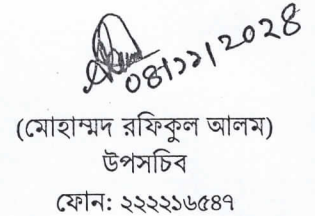 ০৪/১১/২০২৪
(মোহাম্মদ রফিকুল আলম)
উপসচিব
ফোন: ২২২২১৬৫৪৭